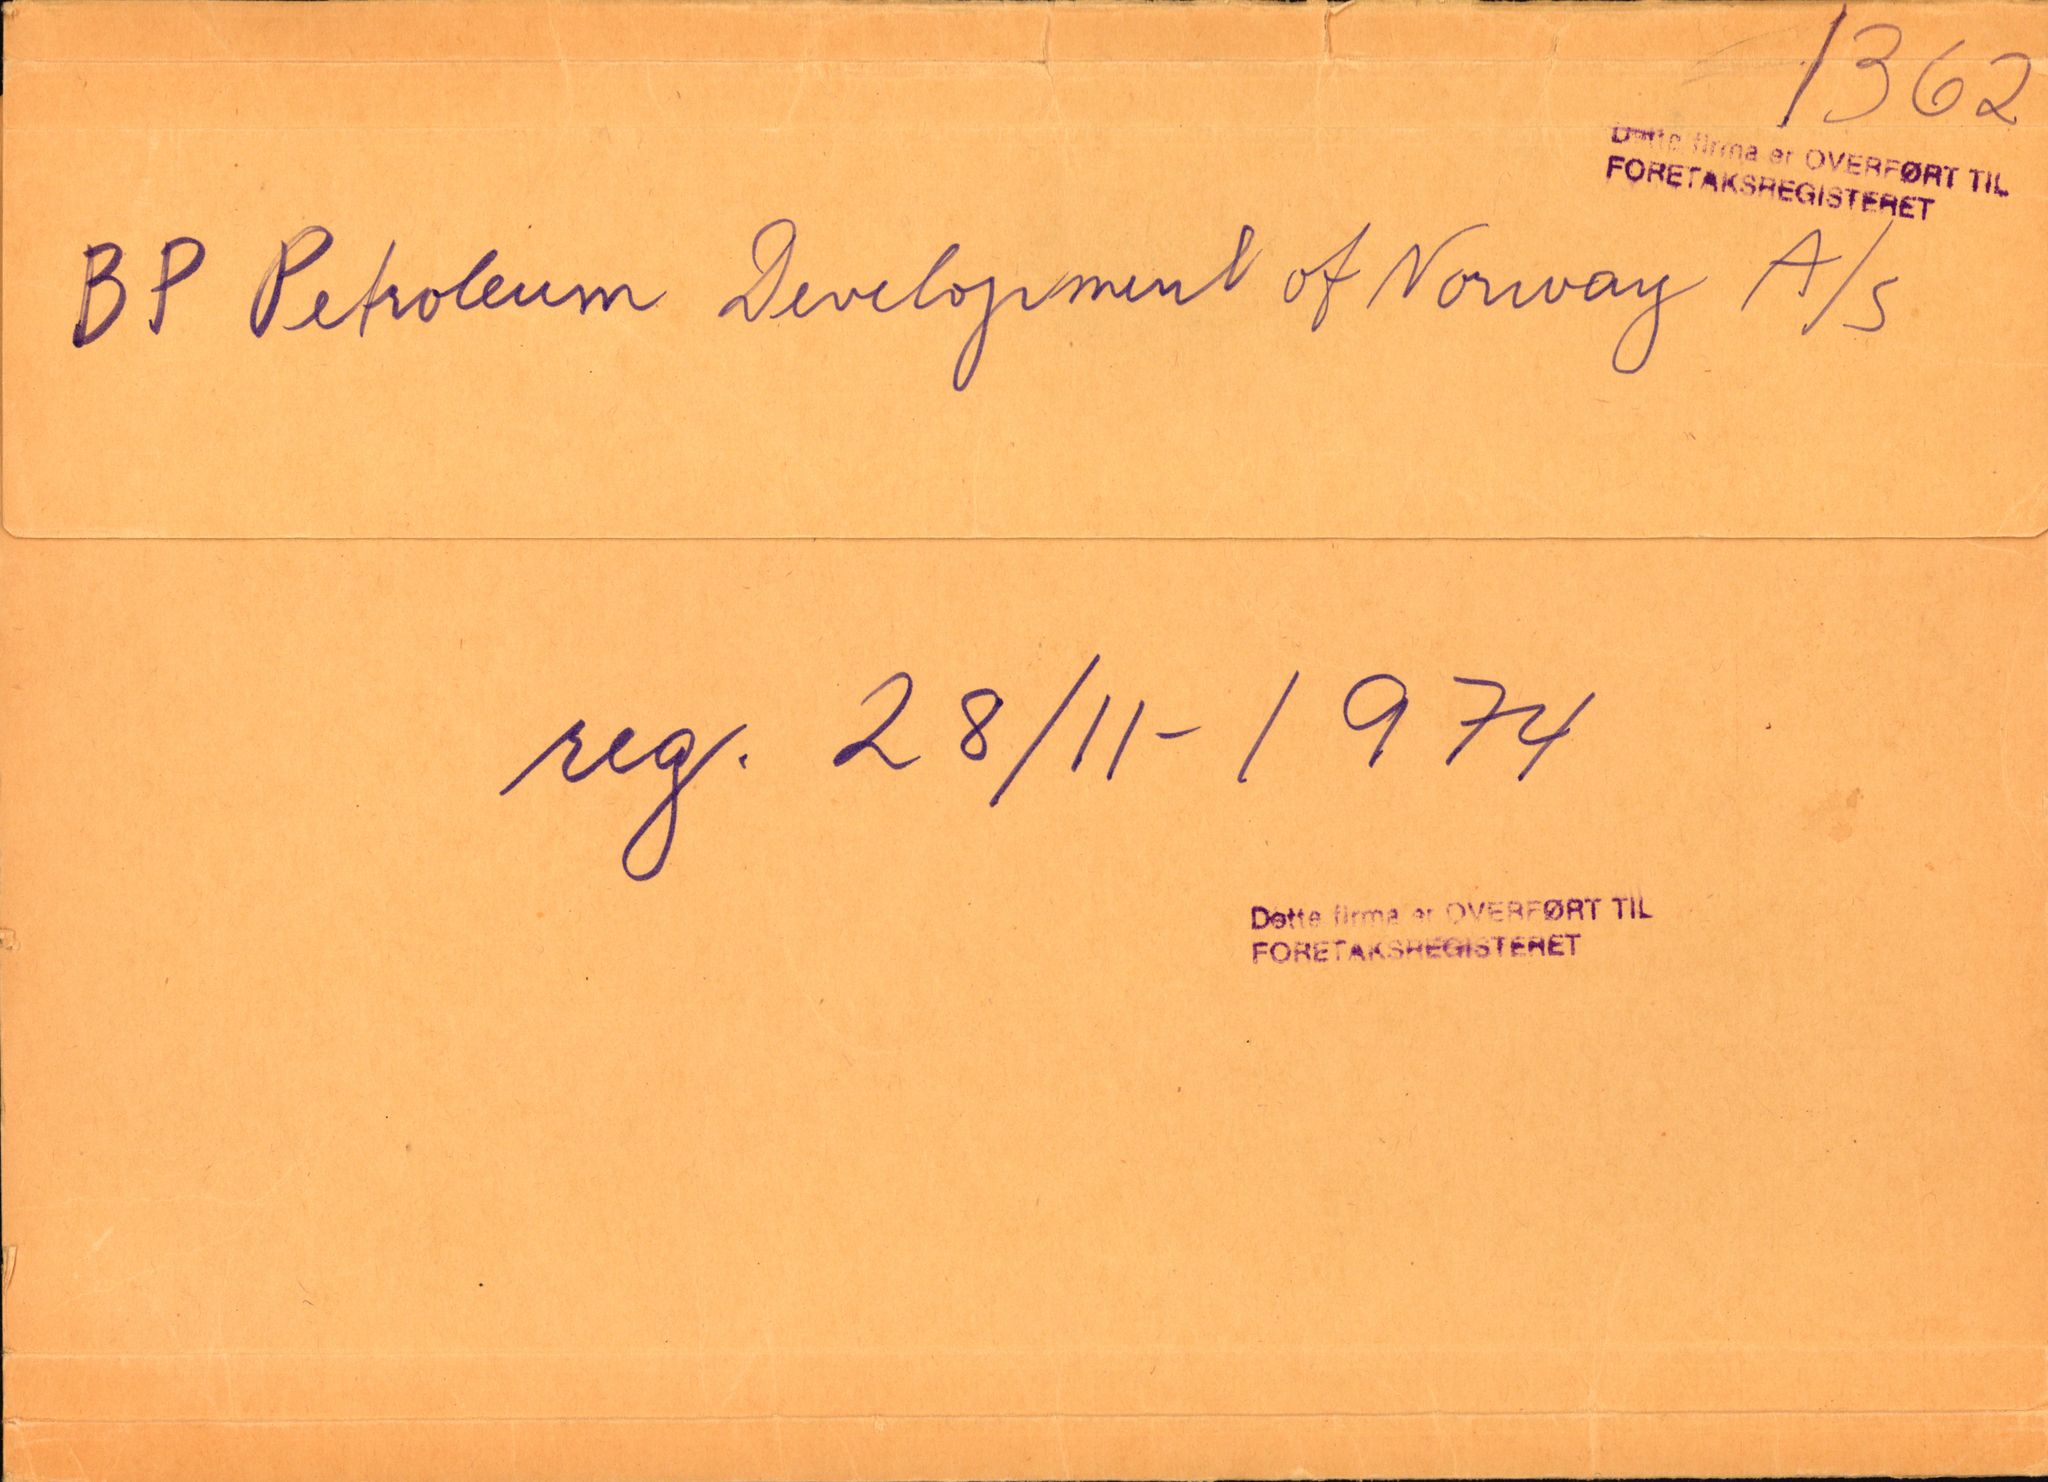 1362
Dette firma er OVERFØRT TIL
FORETAKSREGISTERET
BP Petroleum Development of Norway A/S
reg. 28/11-1974
Dette firma er OVERFØRT TIL
FORETAKSREGISTERET